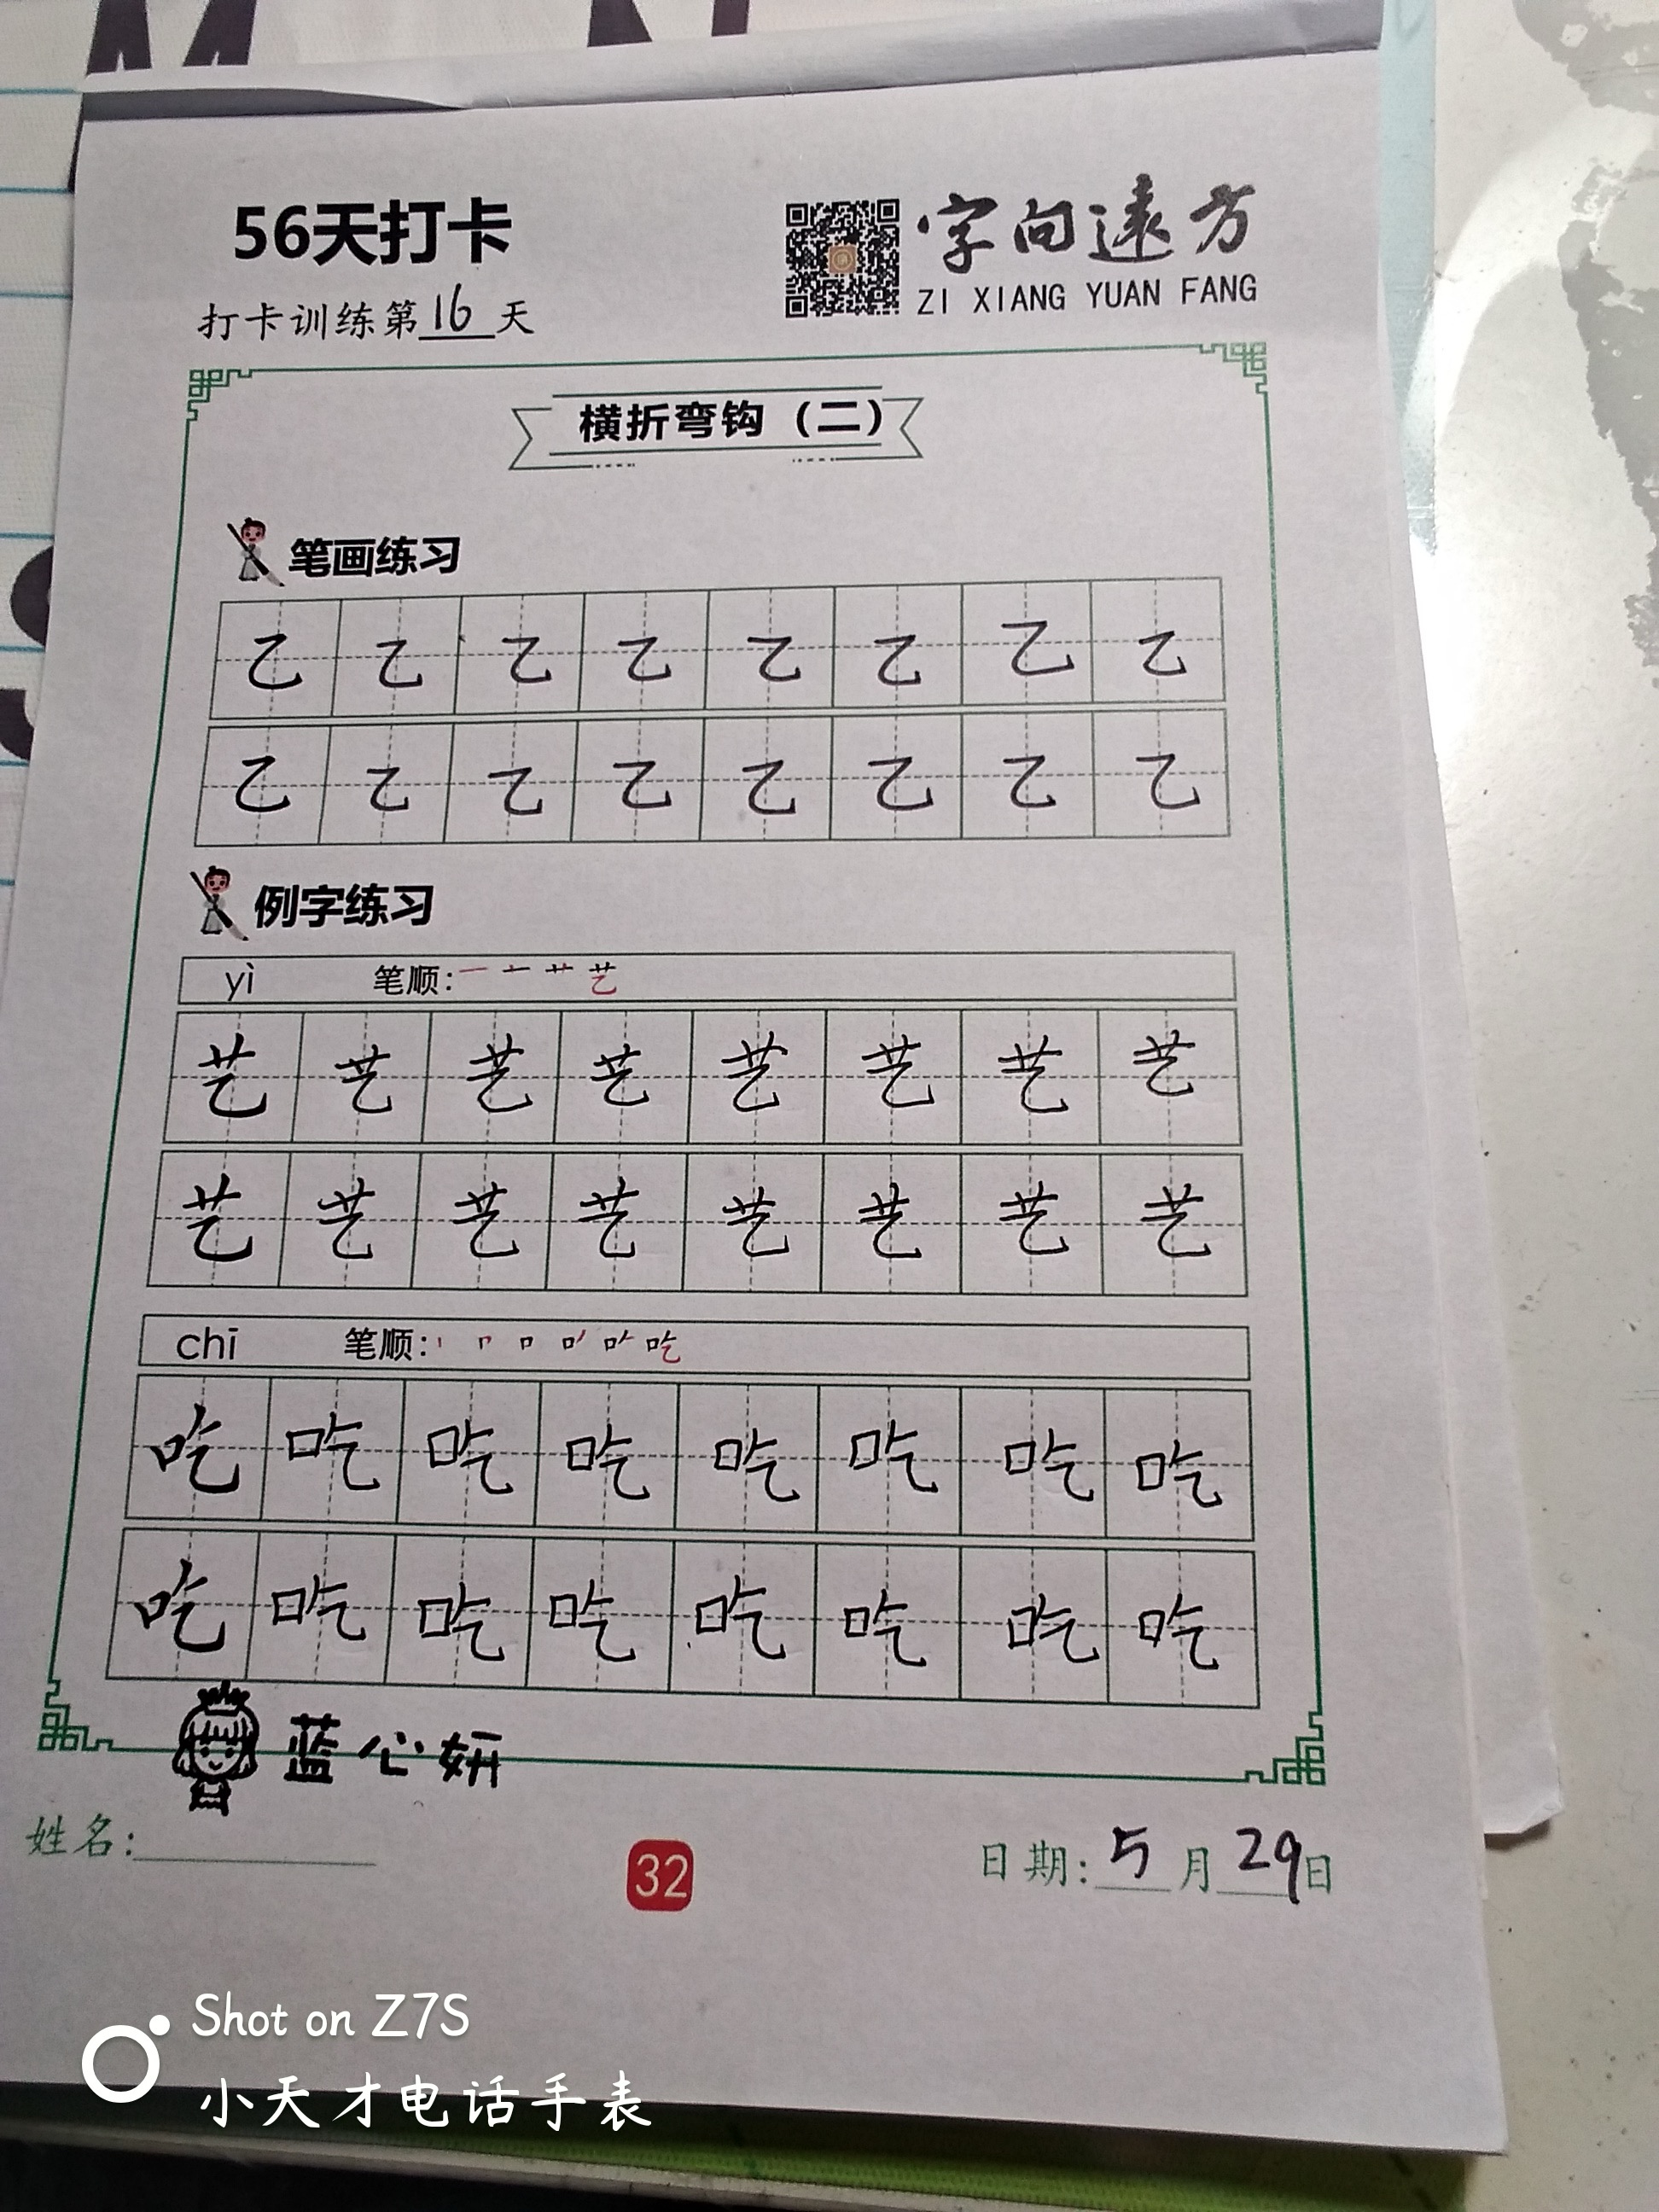 56天打卡
字向遠方
ZI XIANG YUAN FANG
打卡训练第16天
横折弯钩（二）
笔画练习
乙 乙 乙 乙 乙 乙 乙 乙
乙 乙 乙 乙 乙 乙 乙 乙
例字练习
yì 笔顺: 一 艹 艺
艺 艺 艺 艺 艺 艺 艺 艺
艺 艺 艺 艺 艺 艺 艺 艺
chī 笔顺: 丨 口 吃
吃 吃 吃 吃 吃 吃 吃 吃
吃 吃 吃 吃 吃 吃 吃 吃
蓝心妍
姓名:
32
日期: 5月29日
Shot on Z7S
小天才电话手表